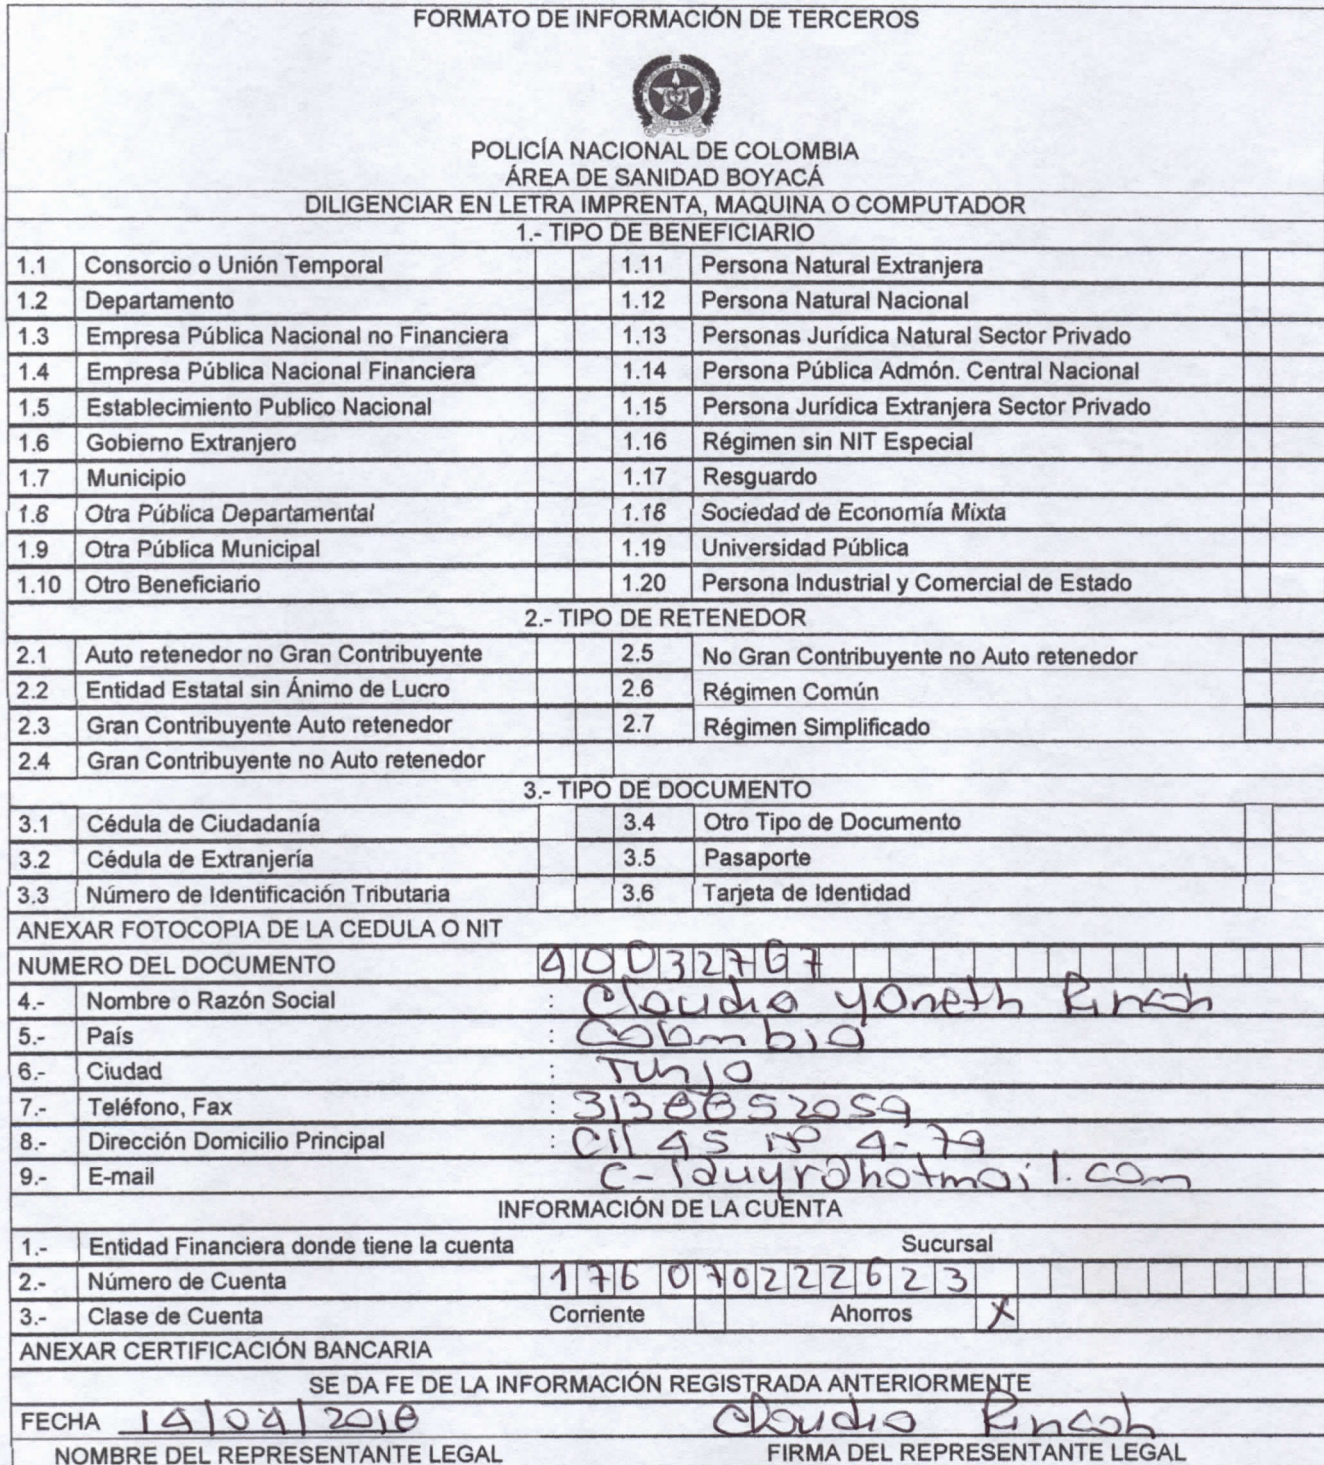 FORMATO DE INFORMACIÓN DE TERCEROS
POLICÍA NACIONAL DE COLOMBIA
ÁREA DE SANIDAD BOYACÁ
DILIGENCIAR EN LETRA IMPRENTA, MAQUINA O COMPUTADOR
1.- TIPO DE BENEFICIARIO
1.1 Consorcio o Unión Temporal 1.11 Persona Natural Extranjera
1.2 Departamento 1.12 Persona Natural Nacional
1.3 Empresa Pública Nacional no Financiera 1.13 Personas Jurídica Natural Sector Privado
1.4 Empresa Pública Nacional Financiera 1.14 Persona Pública Admón. Central Nacional
1.5 Establecimiento Publico Nacional 1.15 Persona Jurídica Extranjera Sector Privado
1.6 Gobierno Extranjero 1.16 Régimen sin NIT Especial
1.7 Municipio 1.17 Resguardo
1.8 Otra Pública Departamental 1.18 Sociedad de Economía Mixta
1.9 Otra Pública Municipal 1.19 Universidad Pública
1.10 Otro Beneficiario 1.20 Persona Industrial y Comercial de Estado
2.- TIPO DE RETENEDOR
2.1 Auto retenedor no Gran Contribuyente 2.5 No Gran Contribuyente no Auto retenedor
2.2 Entidad Estatal sin Ánimo de Lucro 2.6 Régimen Común
2.3 Gran Contribuyente Auto retenedor 2.7 Régimen Simplificado
2.4 Gran Contribuyente no Auto retenedor
3.- TIPO DE DOCUMENTO
3.1 Cédula de Ciudadanía 3.4 Otro Tipo de Documento
3.2 Cédula de Extranjería 3.5 Pasaporte
3.3 Número de Identificación Tributaria 3.6 Tarjeta de Identidad
ANEXAR FOTOCOPIA DE LA CEDULA O NIT
NUMERO DEL DOCUMENTO 40032767
4.- Nombre o Razón Social : Claudia Yaneth Rincon
5.- País : Colombia
6.- Ciudad : Tunja
7.- Teléfono, Fax : 3138852059
8.- Dirección Domicilio Principal : Cll 45 Nº 4-79
9.- E-mail c-lauyr@hotmail.com
INFORMACIÓN DE LA CUENTA
1.- Entidad Financiera donde tiene la cuenta Sucursal
2.- Número de Cuenta 176070222623
3.- Clase de Cuenta Corriente Ahorros X
ANEXAR CERTIFICACIÓN BANCARIA
SE DA FE DE LA INFORMACIÓN REGISTRADA ANTERIORMENTE
FECHA 14/04/2018 Claudia Rincon
NOMBRE DEL REPRESENTANTE LEGAL FIRMA DEL REPRESENTANTE LEGAL